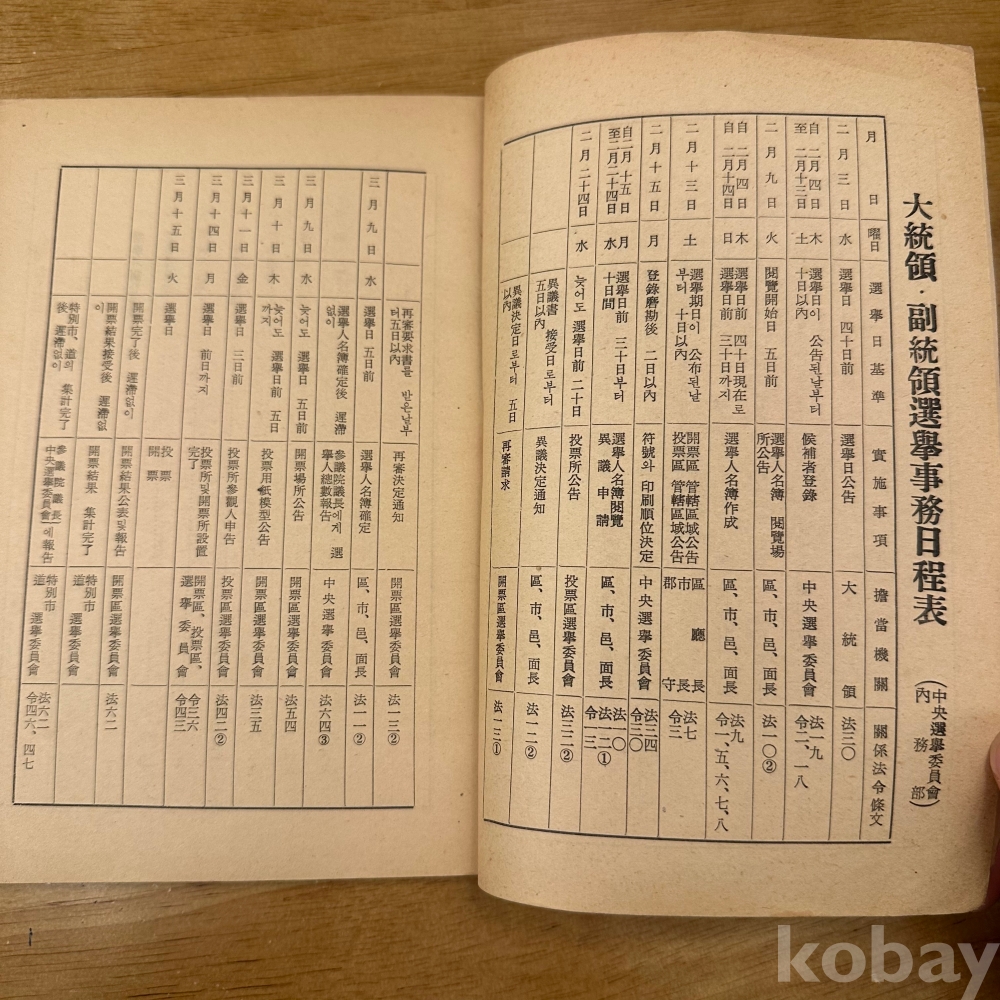 大統領·副統領選擧事務日程表
(中央選擧委員會
內務部)
月日 曜日 選擧日基準 實施事項 擔當機關 關係法令條文
二月三日 水 選擧日 四十日前 選擧日公告 大統領 法三〇
自 二月四日
至 二月十三日 木
土 選擧日이 公告된날부터
十日以內 候補者登錄 中央選擧委員會 法一九
令二、一八
二月九日 火 閱覽開始日 五日前 選擧人名簿 閱覽場
所公告 區、市、邑、面長 法一〇②
自 二月四日
二月十四日 木
日 選擧日前 四十日現在로
選擧日前 三十日까지 選擧人名簿作成 區、市、邑、面長 法九
令一、五、六、七、八
二月十三日 土 選擧期日이 公布된날
부터 十日以內 開票區 管轄區域公告
投票區 管轄區域公告 區廳長
市長
郡守 法七
令三
二月十五日 月 登錄磨勘後 二日以內 符號와 印刷順位決定 中央選擧委員會 法三四
令三〇
自二月十五日
至二月二十四日 月
水 選擧日前 三十日부터
十日間 選擧人名簿閱覽
異議申請 區、市、邑、面長 法一〇
法一二①
令一三
二月二十四日 水 늦어도 選擧日前 二十日 投票所公告 投票區選擧委員會 法三二②
異議書 接受日로부터
五日以內 異議決定通知 區、市、邑、面長 法一二②
異議決定日로부터 五日
以內 再審請求 開票區選擧委員會 法一三①
再審要求書를 받은날부
터五日以內 再審決定通知 開票區選擧委員會 法一三②
三月九日 水 選擧日 五日前 選擧人名簿確定 區、市、邑、面長 法一一②
選擧人名簿確定後 遲滯
없이 參議院議長에게 選
擧人總數報告 中央選擧委員會 法六四③
三月九日 水 늦어도 選擧日 五日前 開票場所公告 開票區選擧委員會 法五四
三月十日 木 늦어도 選擧日前 五日
까지 投票用紙模型公告 開票區選擧委員會 法三五
三月十一日 金 選擧日 三日前 投票所參觀人申告 投票區選擧委員會 法四二②
三月十四日 月 選擧日 前日까지 投票所및開票所設置
完了 開票區、投票區、
選擧委員會 令三六
令四三
三月十五日 火 選擧日 投票
開票
開票完了後 遲滯없이 開票結果公表및報告 開票區選擧委員會 法六二
開票結果接受後 遲滯없
이 開票結果 集計完了 特別市
道 選擧委員會
特別市、道의 集計完了
後 遲滯없이 參議院議長
中央選擧委員會에報告 特別市
道 選擧委員會 法六二
令四六、四七
kobay